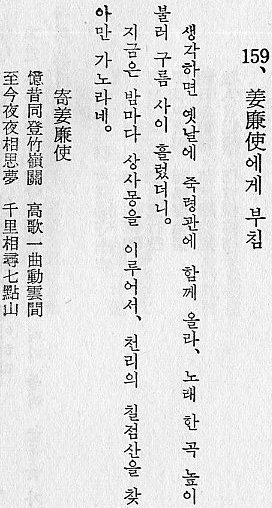 159、姜廉使에게 부침
생각하면 옛날에 죽령관에 함께 올라、노래 한 곡 높이
불러 구름 사이 흘렀더니。
지금은 밤마다 상사몽을 이루어서、천리의 칠점산을 찾
아만 가노라네。
寄姜廉使
憶昔同登竹嶺關 高歌一曲動雲間
至今夜夜相思夢 千里相尋七點山